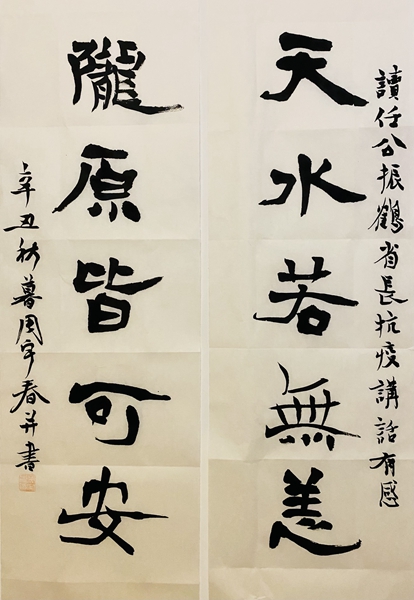 讀任公振鶴省長抗疫講話有感
天水若無恙
隴原皆可安
辛丑秋暮周宇春并書